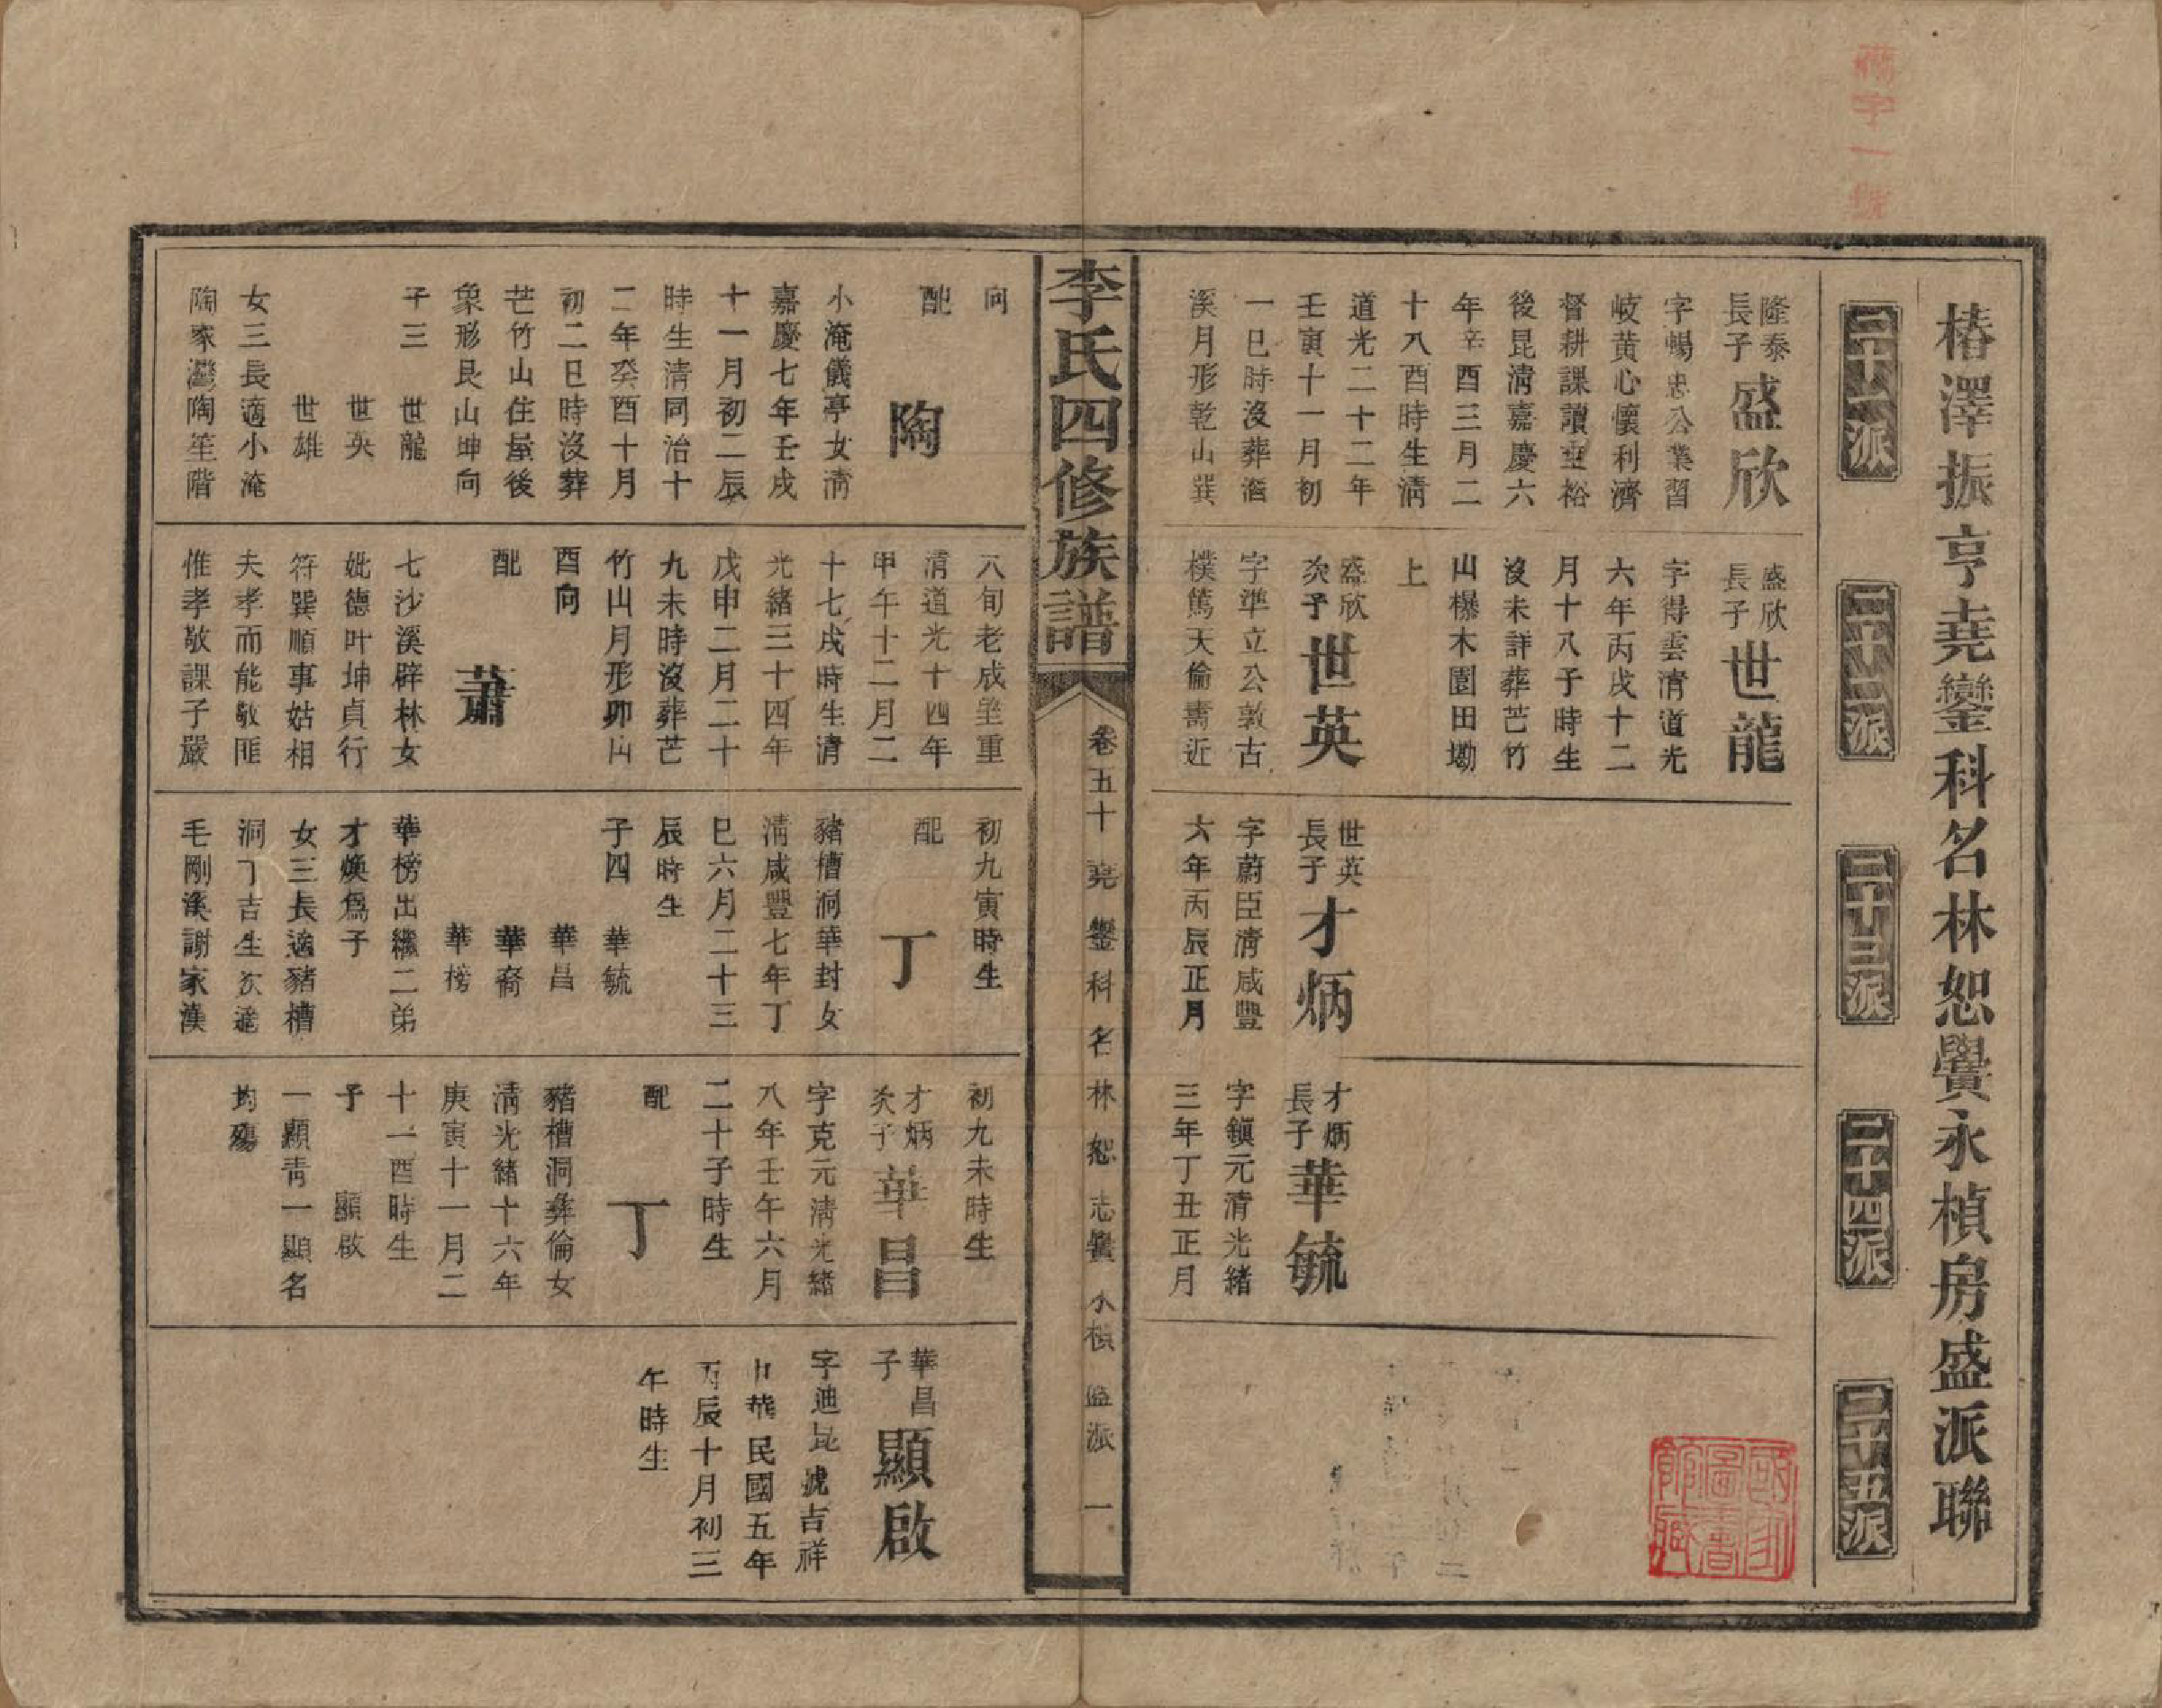 椿澤振亨堯鑾科名林恕黌永楨房盛派聯
二十一派
二十二派
二十三派
二十四派
二十五派
隆泰
長子
盛欣
字暢忠公業習
岐黃心懷利濟
督耕課讀垂裕
後昆清嘉慶六
年辛酉三月二
十八酉時生清
道光二十二年
壬寅十一月初
一巳時沒葬滔
溪月形乾山巽
盛欣
長子
世龍
字得雲清道光
六年丙戌十二
月十八子時生
沒未詳葬芒竹
山樑木園田墈
上
盛欣
次子
世英
字準立公敦古
樸篤天倫壽近
世英
長子
才炳
字蔚臣清咸豐
六年丙辰正月
才炳
長子
華毓
字鎮元清光緒
三年丁丑正月
李氏四修族譜
卷五十
堯鑾科名林恕志黌永楨盛派
一
向
配
陶
小淹儀亭女清
嘉慶七年壬戌
十一月初二辰
時生清同治十
二年癸酉十月
初二巳時沒葬
芒竹山住屋後
象形艮山坤向
子三 世龍
世英
世雄
女三長適小淹
陶家灣陶笙階
八旬老成望重
清道光十四年
甲午十二月二
十七戌時生清
光緒三十四年
戊申二月二十
九未時沒葬芒
竹山月形卯山
酉向
配
蕭
七沙溪辟林女
妣德叶坤貞行
符巽順事姑相
夫孝而能敬匪
惟孝敬課子嚴
初九寅時生
配
丁
豬槽洞華封女
清咸豐七年丁
巳六月二十三
辰時生
子四 華毓
華昌
華裔
華榜
華榜出繼二弟
才煥為子
女三長適豬槽
洞丁吉生次適
毛剛溪謝家漢
初九未時生
才炳
次子
華昌
字克元清光緒
八年壬午六月
二十子時生
配
丁
豬槽洞彝倫女
清光緒十六年
庚寅十一月二
十一酉時生
子 顯啟
一顯青一顯名
均殤
華昌
子
顯啟
字迪昆號吉祥
中華民國五年
丙辰十月初三
午時生